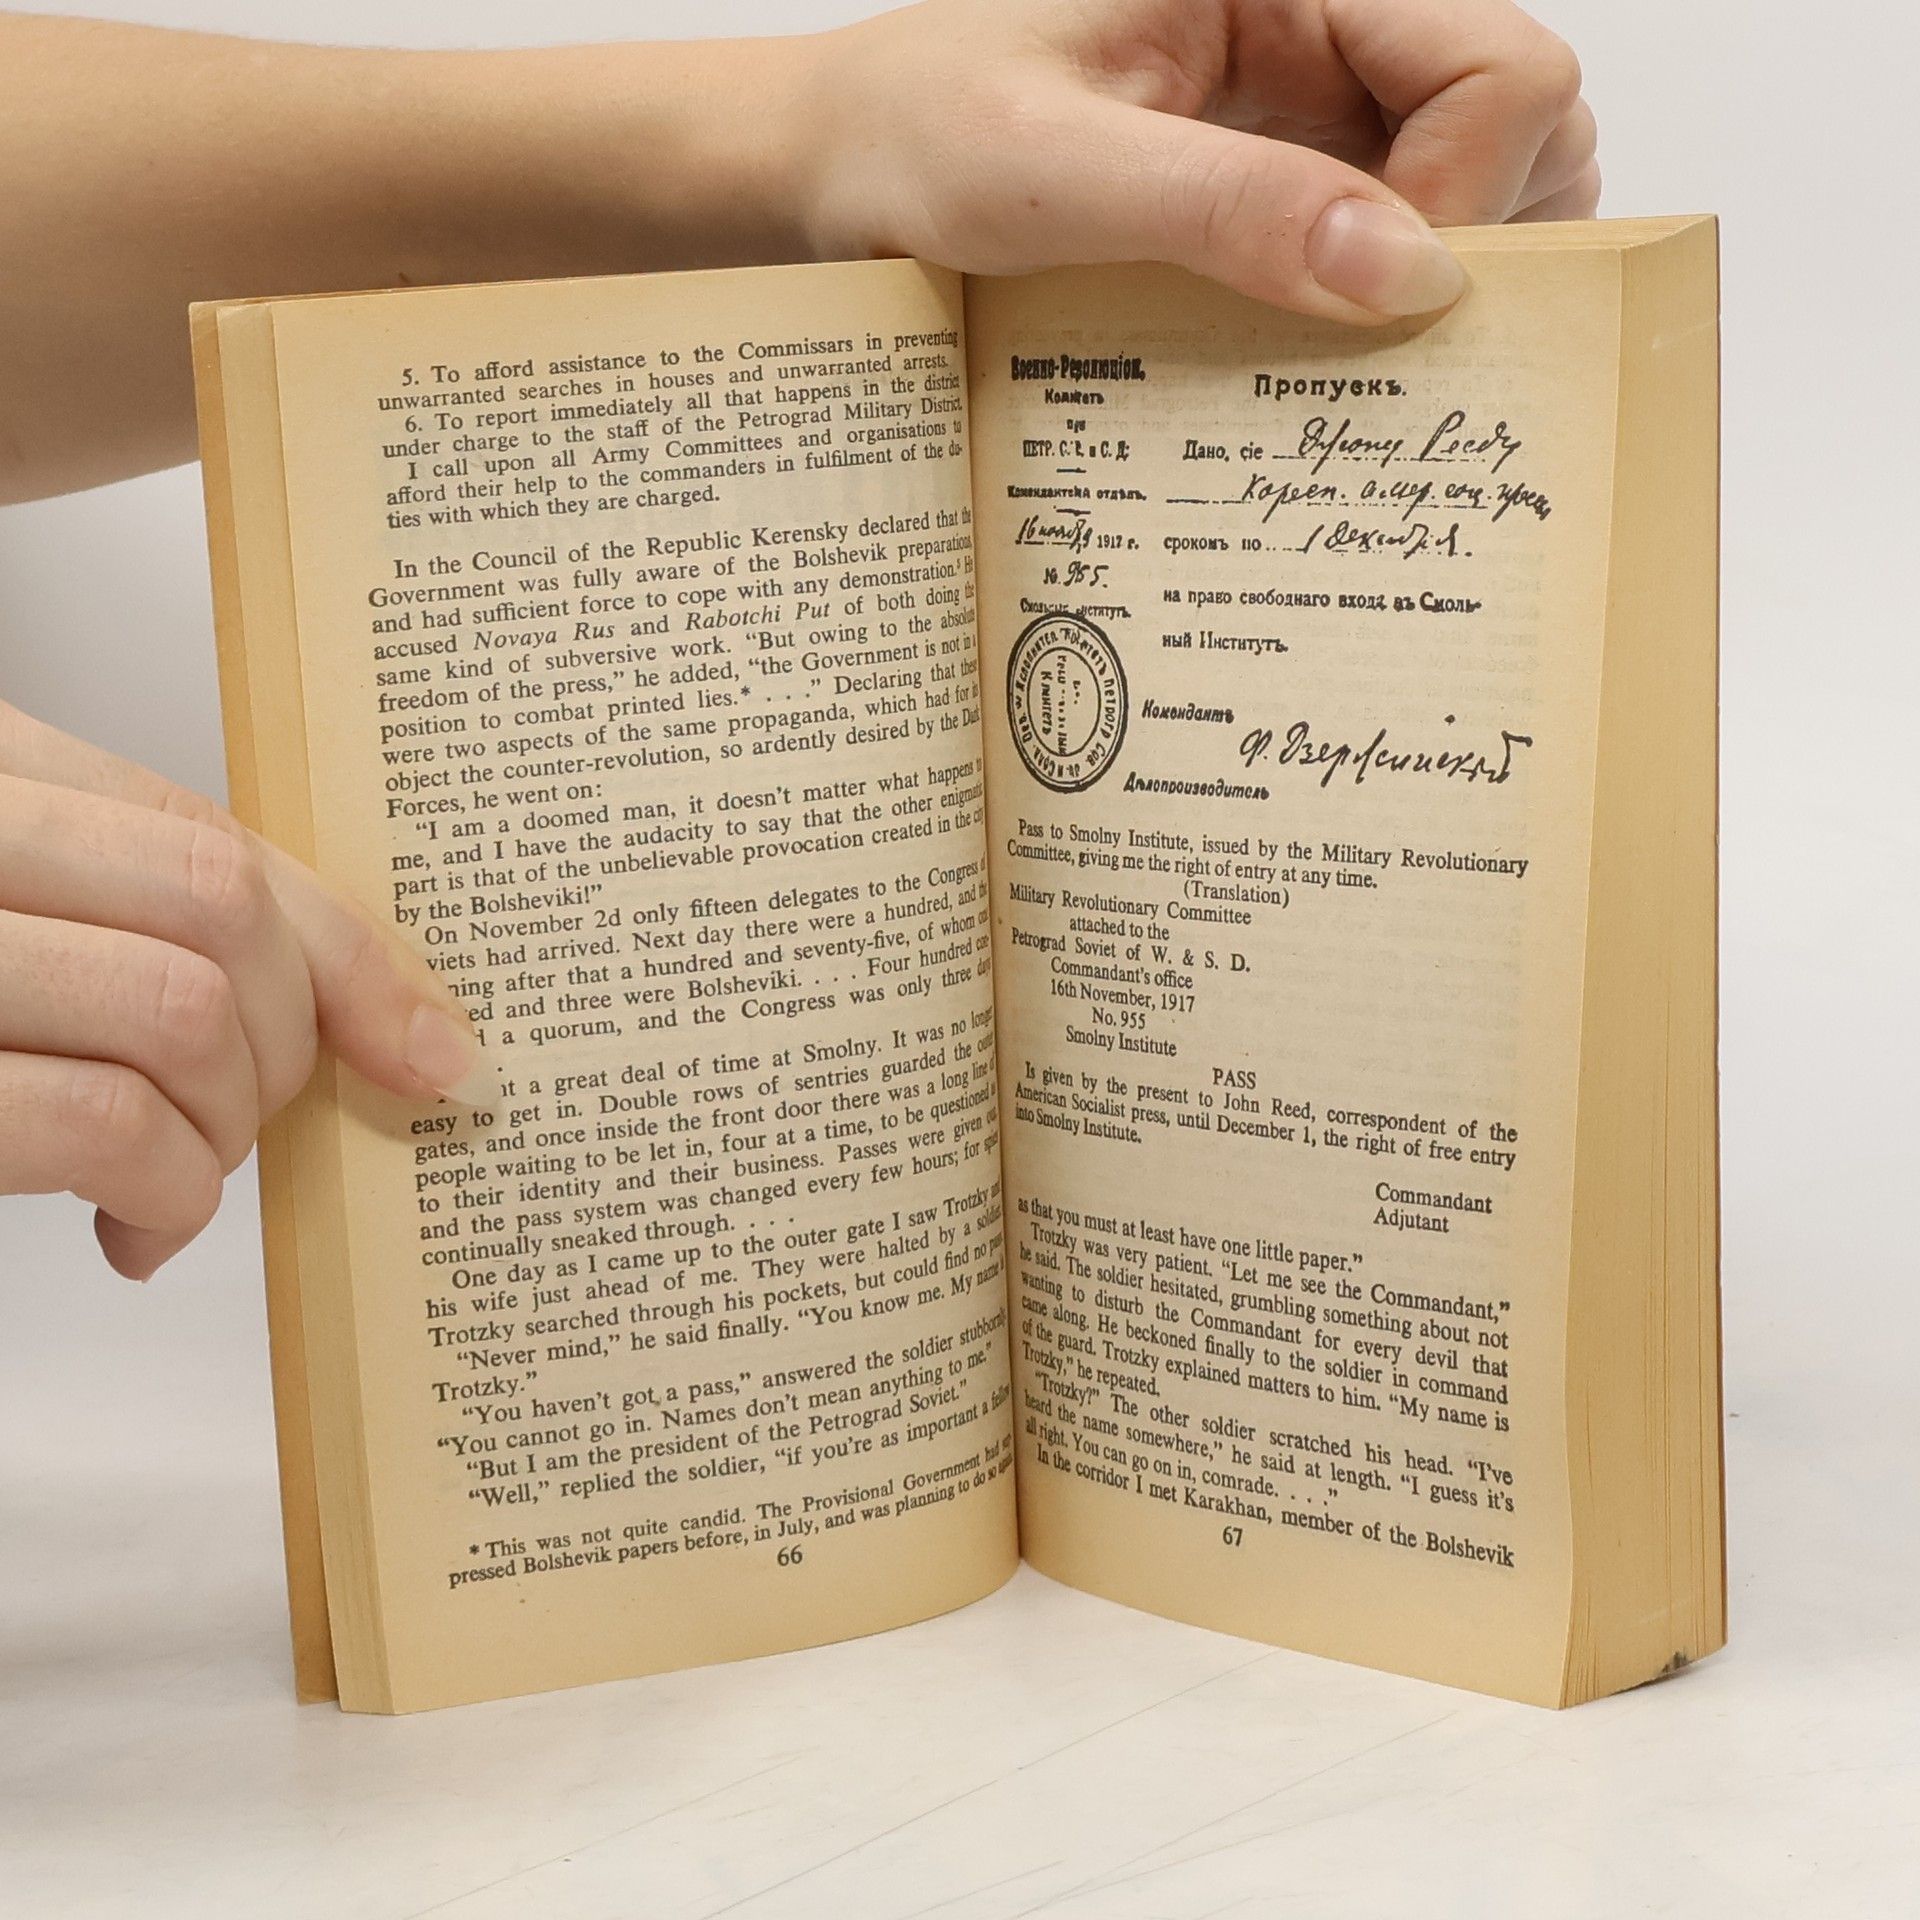 5. To afford assistance to the Commissars in preventing
unwarranted searches in houses and unwarranted arrests.
6. To report immediately all that happens in the district
under charge to the staff of the Petrograd Military District.
I call upon all Army Committees and organisations to
afford their help to the commanders in fulfilment of the du-
ties with which they are charged.
In the Council of the Republic Kerensky declared that the
Government was fully aware of the Bolshevik preparations,
and had sufficient force to cope with any demonstration.⁵ He
accused Novaya Rus and Rabotchi Put of both doing the
same kind of subversive work. “But owing to the absolute
freedom of the press,” he added, “the Government is not in a
position to combat printed lies.* . . .” Declaring that these
were two aspects of the same propaganda, which had for its
object the counter-revolution, so ardently desired by the Dark
Forces, he went on:
“I am a doomed man, it doesn’t matter what happens to
me, and I have the audacity to say that the other enigmatic
part is that of the unbelievable provocation created in the city
by the Bolsheviki!”
On November 2d only fifteen delegates to the Congress of
viets had arrived. Next day there were a hundred, and the
ning after that a hundred and seventy-five, of whom one
ed and three were Bolsheviki. . . . Four hundred con-
a quorum, and the Congress was only three days
a great deal of time at Smolny. It was no longer
easy to get in. Double rows of sentries guarded the outer
gates, and once inside the front door there was a long line of
people waiting to be let in, four at a time, to be questioned as
to their identity and their business. Passes were given out,
and the pass system was changed every few hours; for spies
continually sneaked through. . . .
One day as I came up to the outer gate I saw Trotzky and
his wife just ahead of me. They were halted by a soldier.
Trotzky searched through his pockets, but could find no pass.
“Never mind,” he said finally. “You know me. My name is
Trotzky.”
“You haven’t got a pass,” answered the soldier stubbornly.
“You cannot go in. Names don’t mean anything to me.”
“But I am the president of the Petrograd Soviet.”
“Well,” replied the soldier, “if you’re as important a fellow
* This was not quite candid. The Provisional Government had sup-
pressed Bolshevik papers before, in July, and was planning to do so again.
66
Военно-Революціон.
Комитетъ
при
ПЕТР. С. Р. и С. Д.
Комендантскій отдѣлъ.
16 ноября 1917 г.
№ 955.
Смольный институтъ.
Пропускъ.
Дано, сіе Джону Рееду
Коресп. амер. соц. прессы
срокомъ по 1 Декабря.
на право свободнаго входа въ Смоль-
ный Институтъ.
Комендантъ
Ф. Дзержинскій
Дѣлопроизводитель
Pass to Smolny Institute, issued by the Military Revolutionary
Committee, giving me the right of entry at any time.
(Translation)
Military Revolutionary Committee
attached to the
Petrograd Soviet of W. & S. D.
Commandant’s office
16th November, 1917
No. 955
Smolny Institute
PASS
Is given by the present to John Reed, correspondent of the
American Socialist press, until December 1, the right of free entry
into Smolny Institute.
Commandant
Adjutant
as that you must at least have one little paper.”
Trotzky was very patient. “Let me see the Commandant,”
he said. The soldier hesitated, grumbling something about not
wanting to disturb the Commandant for every devil that
came along. He beckoned finally to the soldier in command
of the guard. Trotzky explained matters to him. “My name is
Trotzky,” he repeated.
“Trotzky?” The other soldier scratched his head. “I’ve
heard the name somewhere,” he said at length. “I guess it’s
all right. You can go on in, comrade. . . .”
In the corridor I met Karakhan, member of the Bolshevik
67